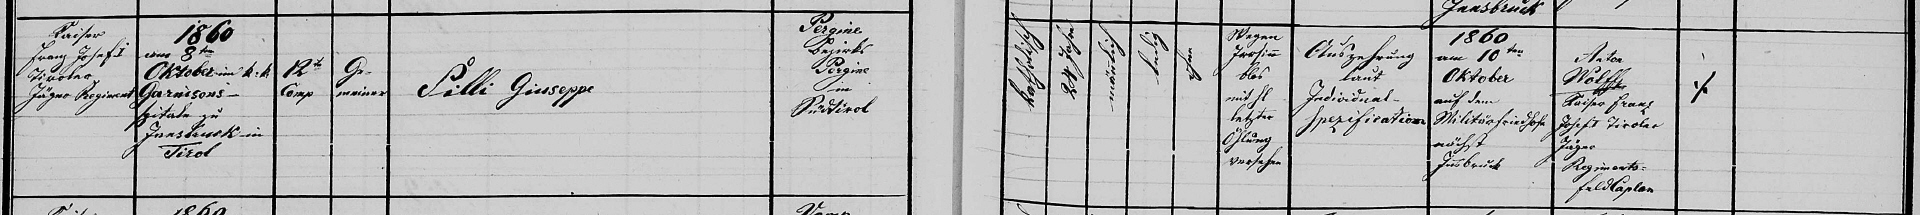 Kaiser
Franz Josef I
Tiroler
Jäger Regiment
1860
am 8ten
Oktober im k. k.
Garnisons-
spitale zu
Innsbruck in
Tirol
12te
Comp
Ge-
meiner
Pilli Giuseppe
Pergine
Bezirks
Pergine
in
Südtirol
katholisch
24 Jahre
männlich
ledig
Wegen
Irrsinn
blos
mit hl
letzter
Öhlung
versehen
Auszehrung
laut
Individual-
Spezification
Innsbruck
1860
am 10ten
Oktober
auf dem
Militärfriedhofe
nächst
Insbruck
Anton
Wolff
Kaiser Franz
Josef I Tiroler
Jäger
Regiments-
feldCaplan
1860